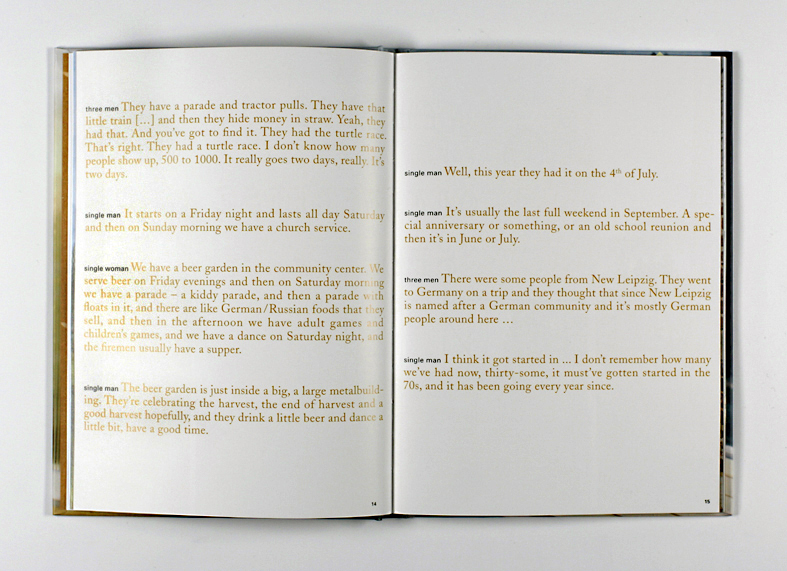 three men They have a parade and tractor pulls. They have that
little train [...] and then they hide money in straw. Yeah, they
had that. And you've got to find it. They had the turtle race.
That's right. They had a turtle race. I don't know how many
people show up, 500 to 1000. It really goes two days, really. It's
two days.
single man It starts on a Friday night and lasts all day Saturday
and then on Sunday morning we have a church service.
single woman We have a beer garden in the community center. We
serve beer on Friday evenings and then on Saturday morning
we have a parade – a kiddy parade, and then a parade with
floats in it, and there are like German/Russian foods that they
sell, and then in the afternoon we have adult games and
children's games, and we have a dance on Saturday night, and
the firemen usually have a supper.
single man The beer garden is just inside a big, a large metalbuild-
ing. They're celebrating the harvest, the end of harvest and a
good harvest hopefully, and they drink a little beer and dance a
little bit, have a good time.
14
single man Well, this year they had it on the 4th of July.
single man It's usually the last full weekend in September. A spe-
cial anniversary or something, or an old school reunion and
then it's in June or July.
three men There were some people from New Leipzig. They went
to Germany on a trip and they thought that since New Leipzig
is named after a German community and it's mostly German
people around here ...
single man I think it got started in ... I don't remember how many
we've had now, thirty-some, it must've gotten started in the
70s, and it has been going every year since.
15